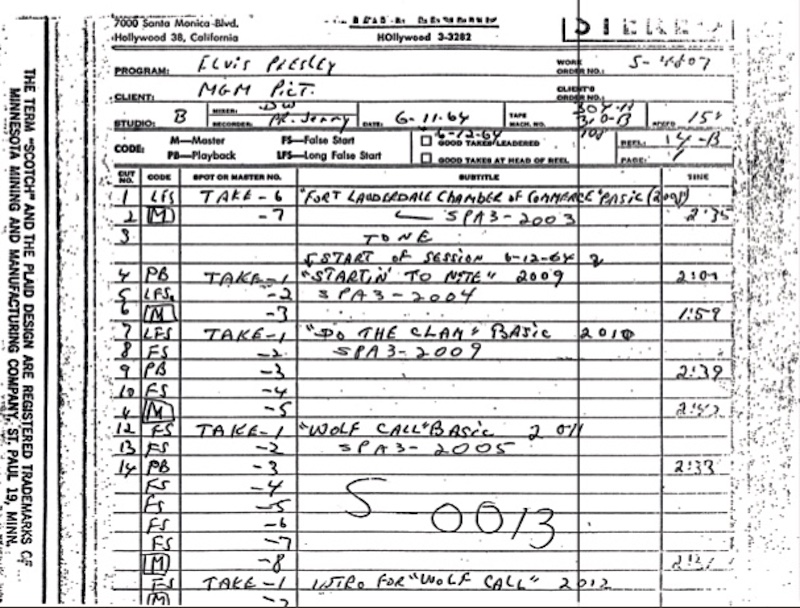 7000 Santa Monica Blvd.
Hollywood 38, California
HOllywood 3-3282
STEREO
PROGRAM: ELVIS PRESLEY WORK ORDER NO.: S-4807
CLIENT: MGM PICT. CLIENT'S ORDER NO.:
STUDIO: B MIXER: DW RECORDER: DATE: 6-11-64 TAPE MACH. NO. SPEED 15"
6-12-64
CODE: M—Master FS—False Start GOOD TAKES LEADERED REEL: 14-B
PB—Playback LFS—Long False Start GOOD TAKES AT HEAD OF REEL PAGE: 1
CUT NO. CODE SPOT OR MASTER NO. SUBTITLE TIME
1 LFS TAKE-6 "FORT LAUDERDALE CHAMBER OF COMMERCE" BASIC (2008)
2 M -7 SPA3-2003 2:35
3 TONE
START OF SESSION 6-12-64
4 PB TAKE-1 "STARTIN' TO NITE" 2009
5 LFS -2 SPA3-2004
6 M -3 1:59
7 LFS TAKE-1 "DO THE CLAM" BASIC 2010
8 FS -2 SPA3-2009
9 PB -3 2:39
10 FS -4
M -5
12 FS TAKE-1 "WOLF CALL" BASIC 2011
13 FS -2 SPA3-2005
14 PB -3 2:33
FS -4
FS -5
FS -6
FS -7
S-0013
M -8
FS TAKE-1 INTRO FOR "WOLF CALL" 2012
M -2
THE TERM "SCOTCH" AND THE PLAID DESIGN ARE REGISTERED TRADEMARKS OF
MINNESOTA MINING AND MANUFACTURING COMPANY, ST. PAUL 19, MINN.